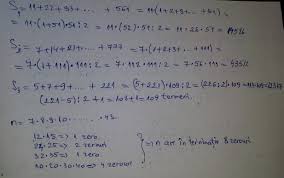 S₁ = 11+22+33+ ... + 561 = 11(1+2+3+ ... +51) =
= 11·(1+51)·51:2 = 11·(52)·51:2 = 11·26·51 = 14586
S₂ = 7+14+21+ ... + 777 = 7·(1+2+3+ ... +111) =
= 7·(1+111)·111:2 = 7·112·111:2 = 7·56·111 = 43512
S₃ = 5+7+9+ ... + 221 = (5+221)·109:2 = (226:2)·109 = 113·109 = 12317
(221-5):2+1 = 108+1 = 109 termeni.
n = 7·8·9·10· ... ·43
12·15 => 1 zero
24·25 => 2 zerouri
32·35 => 1 zero
10·20·30·40 => 4 zerouri
=> n are în terminație 8 zerouri